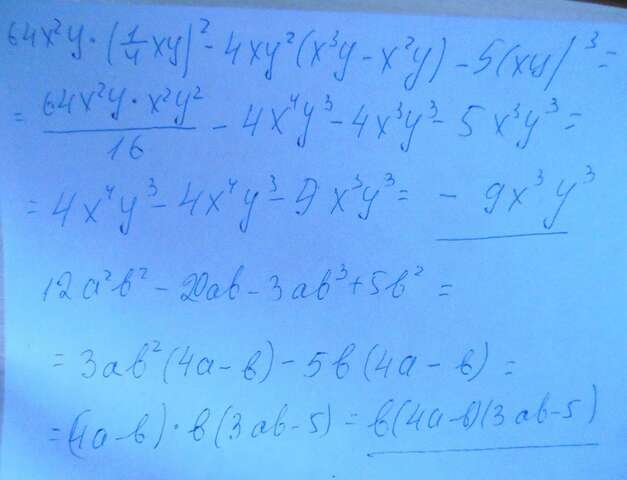 64x²y · (1/4 xy)² - 4xy²(x³y - x²y) - 5(xy)³ =
= 64x²y · x²y² / 16 - 4x⁴y³ - 4x³y³ - 5x³y³ =
= 4x⁴y³ - 4x⁴y³ - 9x³y³ = - 9x³y³
12a²b² - 20ab - 3ab³ + 5b² =
= 3ab²(4a - b) - 5b(4a - b) =
= (4a - b) · b(3ab - 5) = b(4a - b)(3ab - 5)